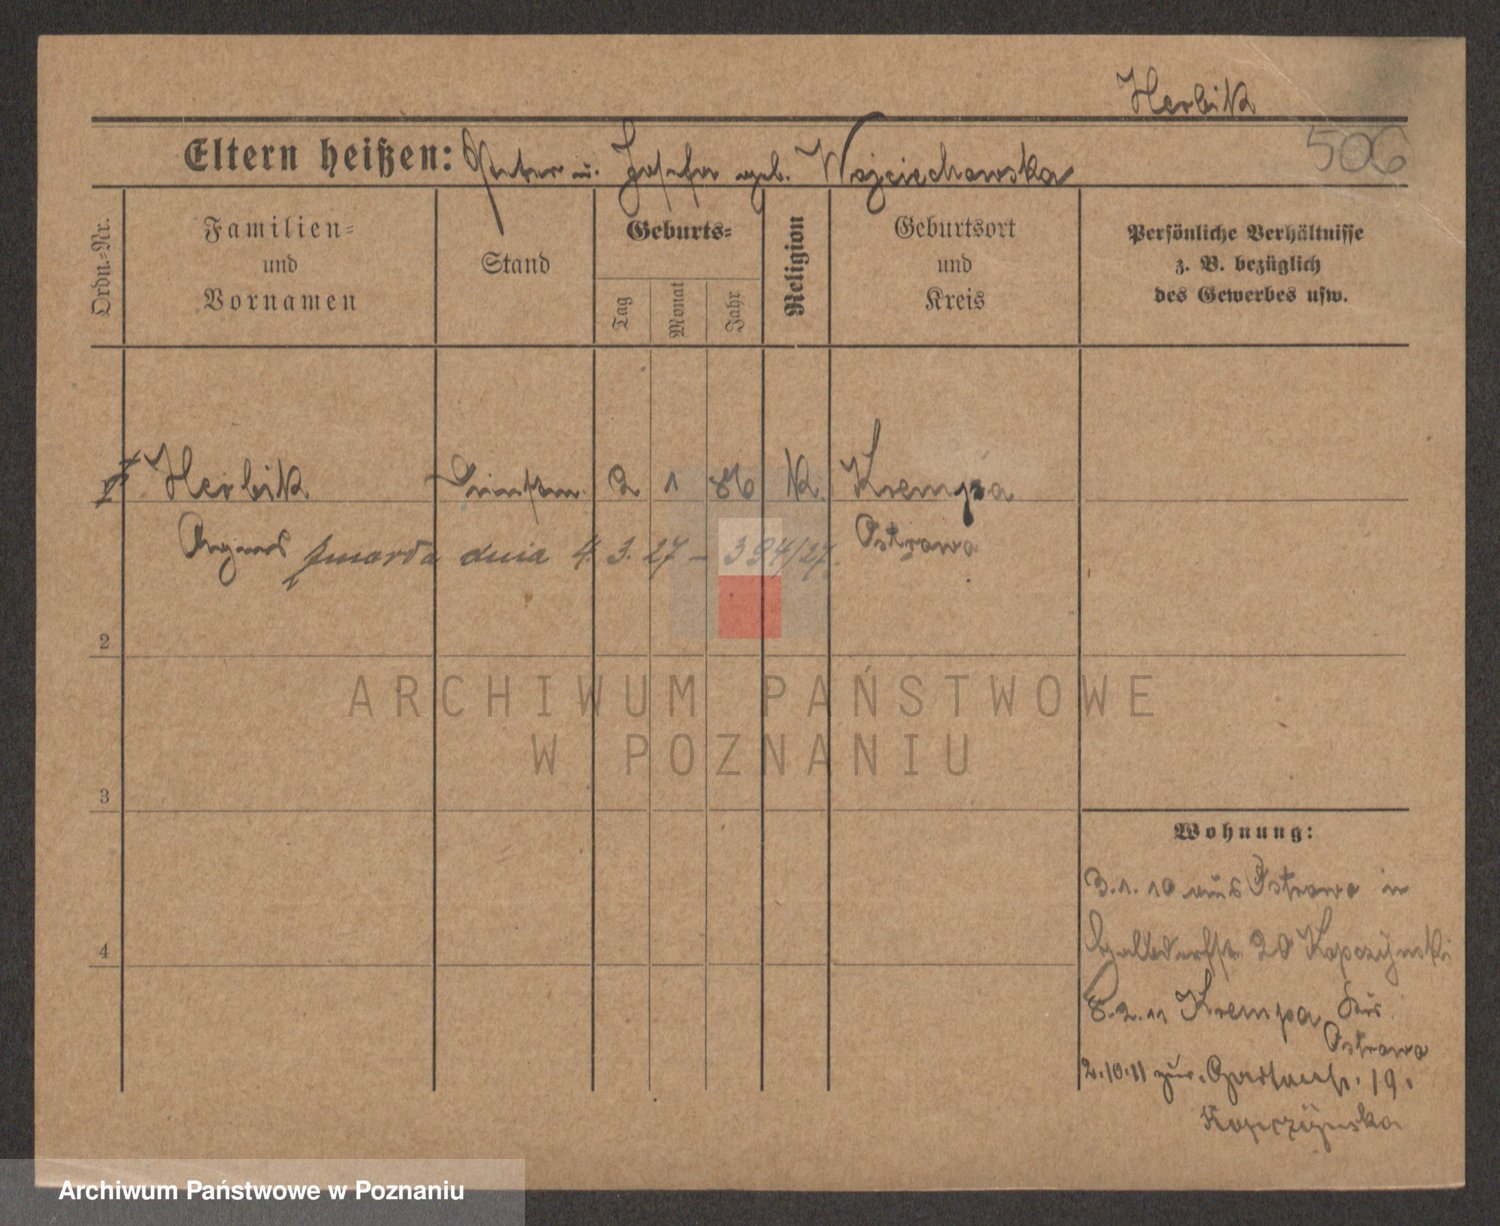 Herbik
506
Eltern heißen: Peter u. Josefa geb. Wojciechowska
Ordn.-Nr.
Familien-
und
Vornamen
Stand
Geburts-
Tag
Monat
Jahr
Religion
Geburtsort
und
Kreis
Persönliche Verhältnisse
z. B. bezüglich
des Gewerbes usw.
Herbik 2 1 86 K. Krempa
Agnes zmarła dnia 4. 3. 27 – 394/27. Ostrowo
2
ARCHIWUM PAŃSTWOWE
W POZNANIU
3
Wohnung:
3.1.10 aus Ostrowo in
20 Kopczynski
4
8.2.11 Krempa Krs.
Ostrowo
2.10.11 zur. Gartenstr. 19.
Kopczynska
Archiwum Państwowe w Poznaniu